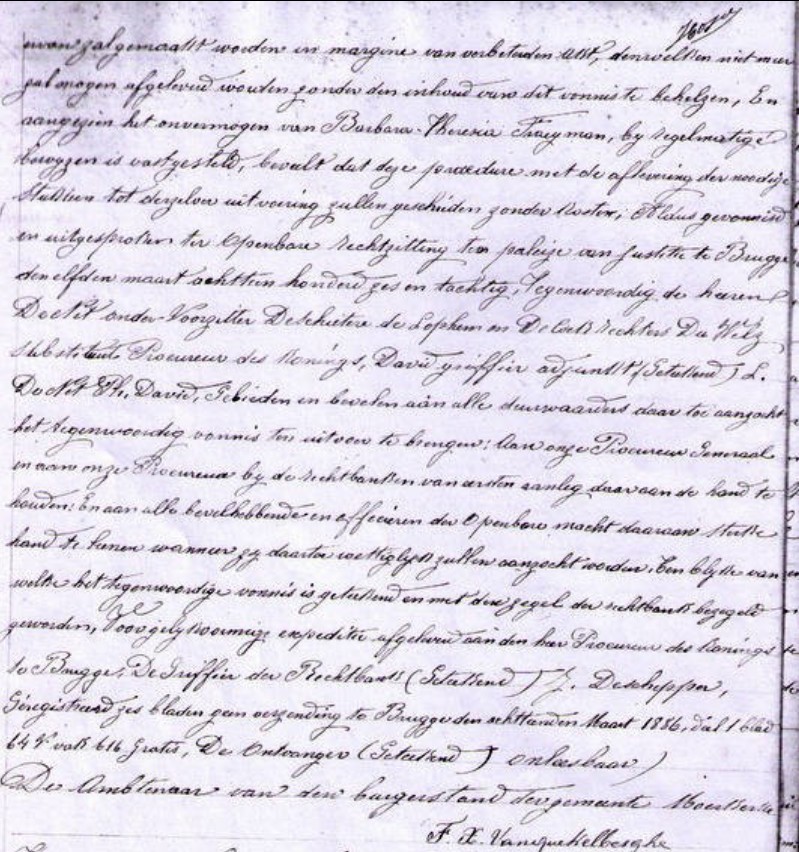 ervan zal gemaakt worden in margine van verbeterden akt, denwelken niet meer
zal mogen afgeleverd worden zonder den inhoud van dit vonnis te behelzen, En
aangezien het onvermogen van Barbara-Theresia Traeyman, by regelmatige
bewyzen is vastgesteld, beveelt dat deze procedure met de aflevering der noodige
stukken tot derzelver uitvoering zullen geschieden zonder kosten; Aldus gevonnisd
en uitgesproken ter Openbare rechtzitting ten paleize van Justitie te Brugge
den elfden maart achttien honderd zes en tachtig, Tegenwoordig de heeren
De Net onder-Voorzitter De Schietere de Lophem en De Cock rechters Du Welz
substituut Procureur des Konings, David griffier adjunkt (Geteekend) L.
De Net Th. David, Gebieden en bevelen aan alle deurwaarders daar toe aanzocht
het tegenwoordig vonnis ten uitvoer te brengen: Aan onze Procureur Generaal
en aan onze Procureurs by de rechtbanken van eersten aanleg daaraan de hand te
houden: En aan alle bevelhebbende en officieren der Openbare macht daaraan sterke
hand te leenen wanneer zy daartoe wettiglyk zullen aanzocht worden, Ten blyke van
welke het tegenwoordige vonnis is geteekend en met den zegel der rechtbank bezegeld
geworden, Voor gelykvormige expeditie afgeleverd aan den heer Procureur des Konings
te Brugge, De Griffier der Rechtbank (Geteekend) J. Deschepper,
Geregistreerd zes bladen geen verzending te Brugge den achttienden Maart 1886, deel 1 blad
64 V vak 616 Gratis, De Ontvanger (Geteekend) onleesbaar)
De Ambtenaar van den burgerstand der gemeente Moerkerke
F. X. Vanquekelberghe